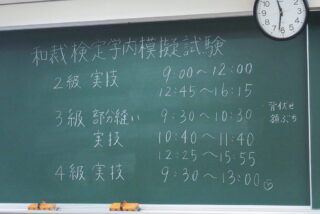 和裁検定学内模擬試験
2級 実技 9:00～12:00
12:45～16:15
3級 部分縫い 9:30～10:30
実技 10:40～11:40
12:25～15:55
4級 実技 9:30～13:00
背伏せ
額ぶち